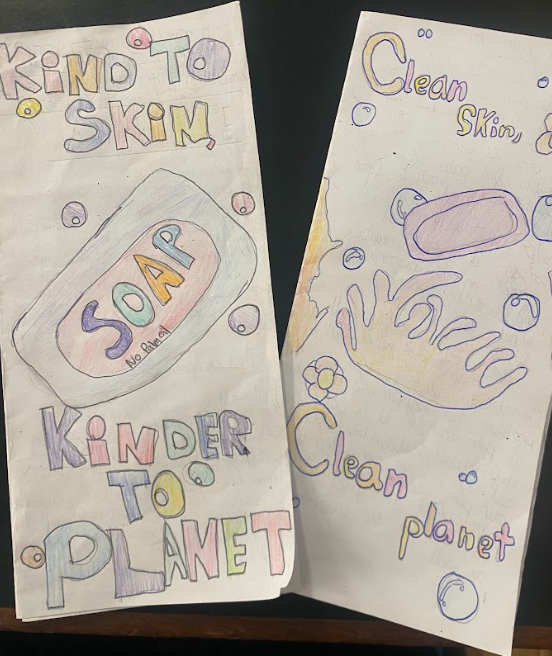 KIND TO
SKIN,
SOAP
No Palm oil
KINDER
TO
PLANET
Clean
Skin,
Clean
planet